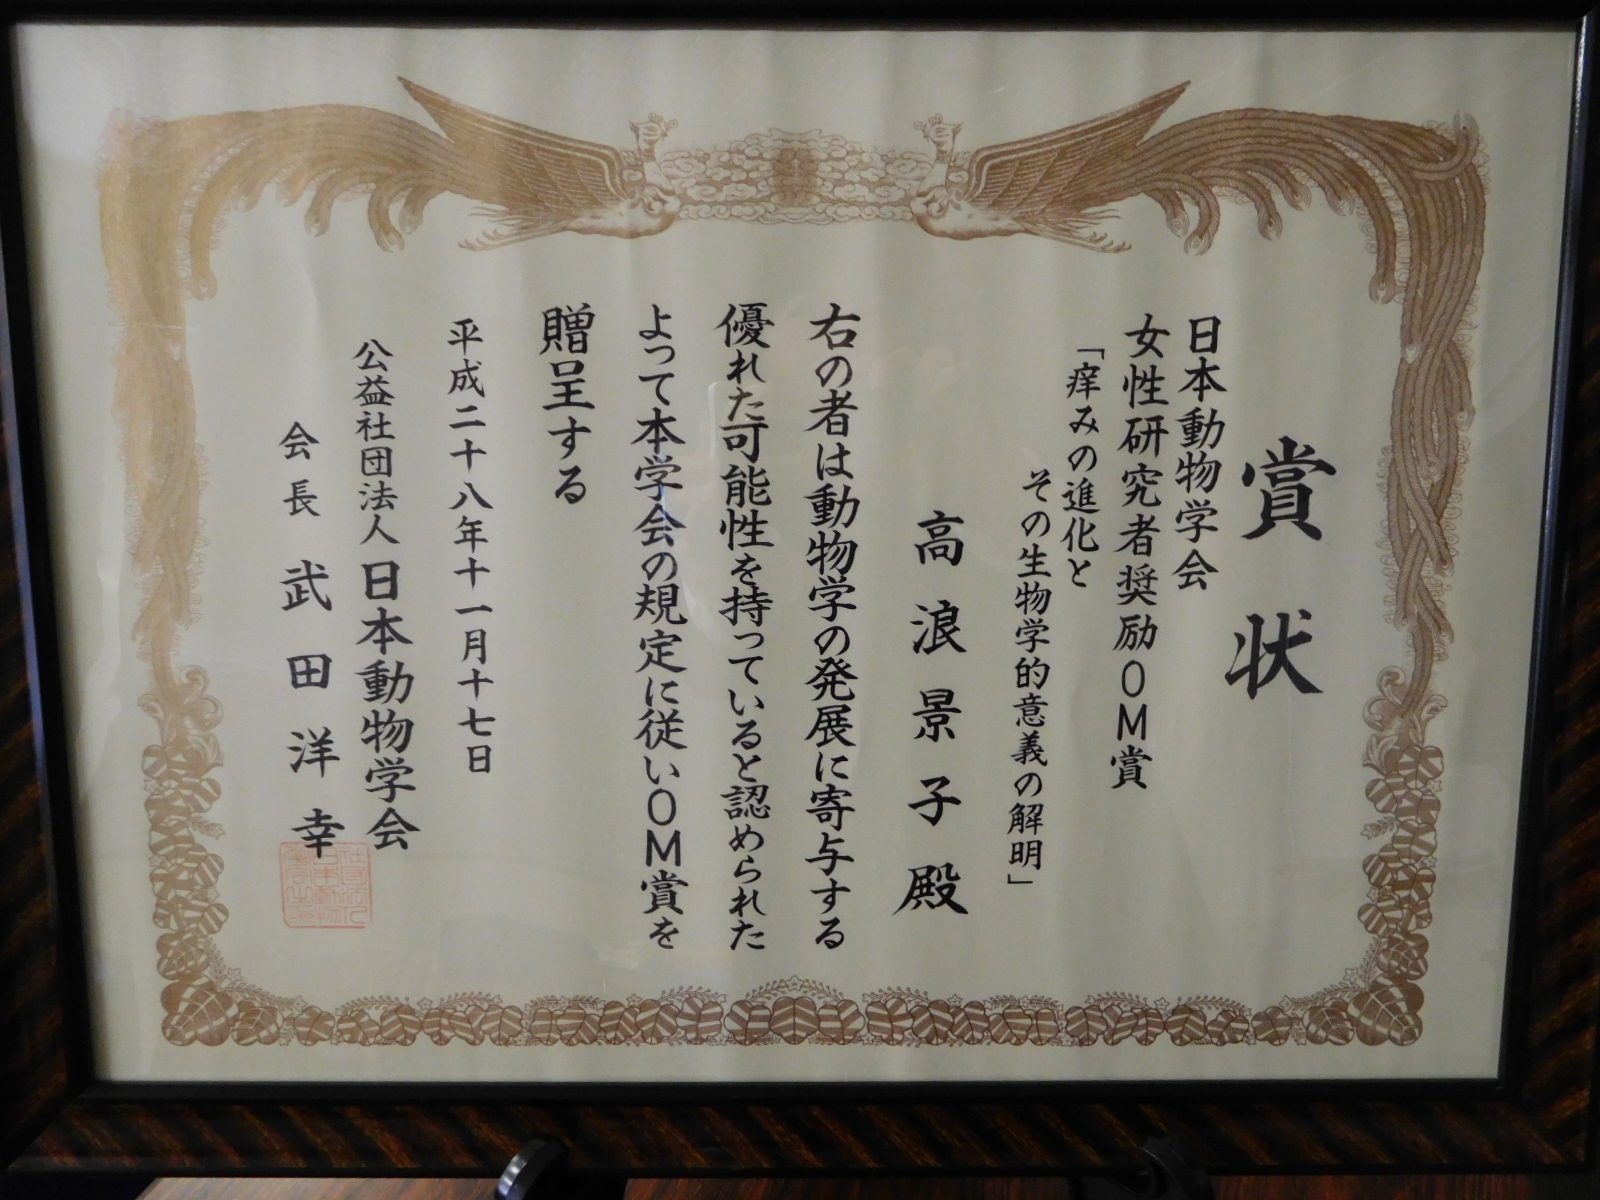 賞状
日本動物学会
女性研究者奨励OM賞
「痒みの進化と
その生物学的意義の解明」
高浪景子殿
右の者は動物学の発展に寄与する
優れた可能性を持っていると認められた
よって本学会の規定に従いOM賞を
贈呈する
平成二十八年十一月十七日
公益社団法人日本動物学会
会長 武田洋幸